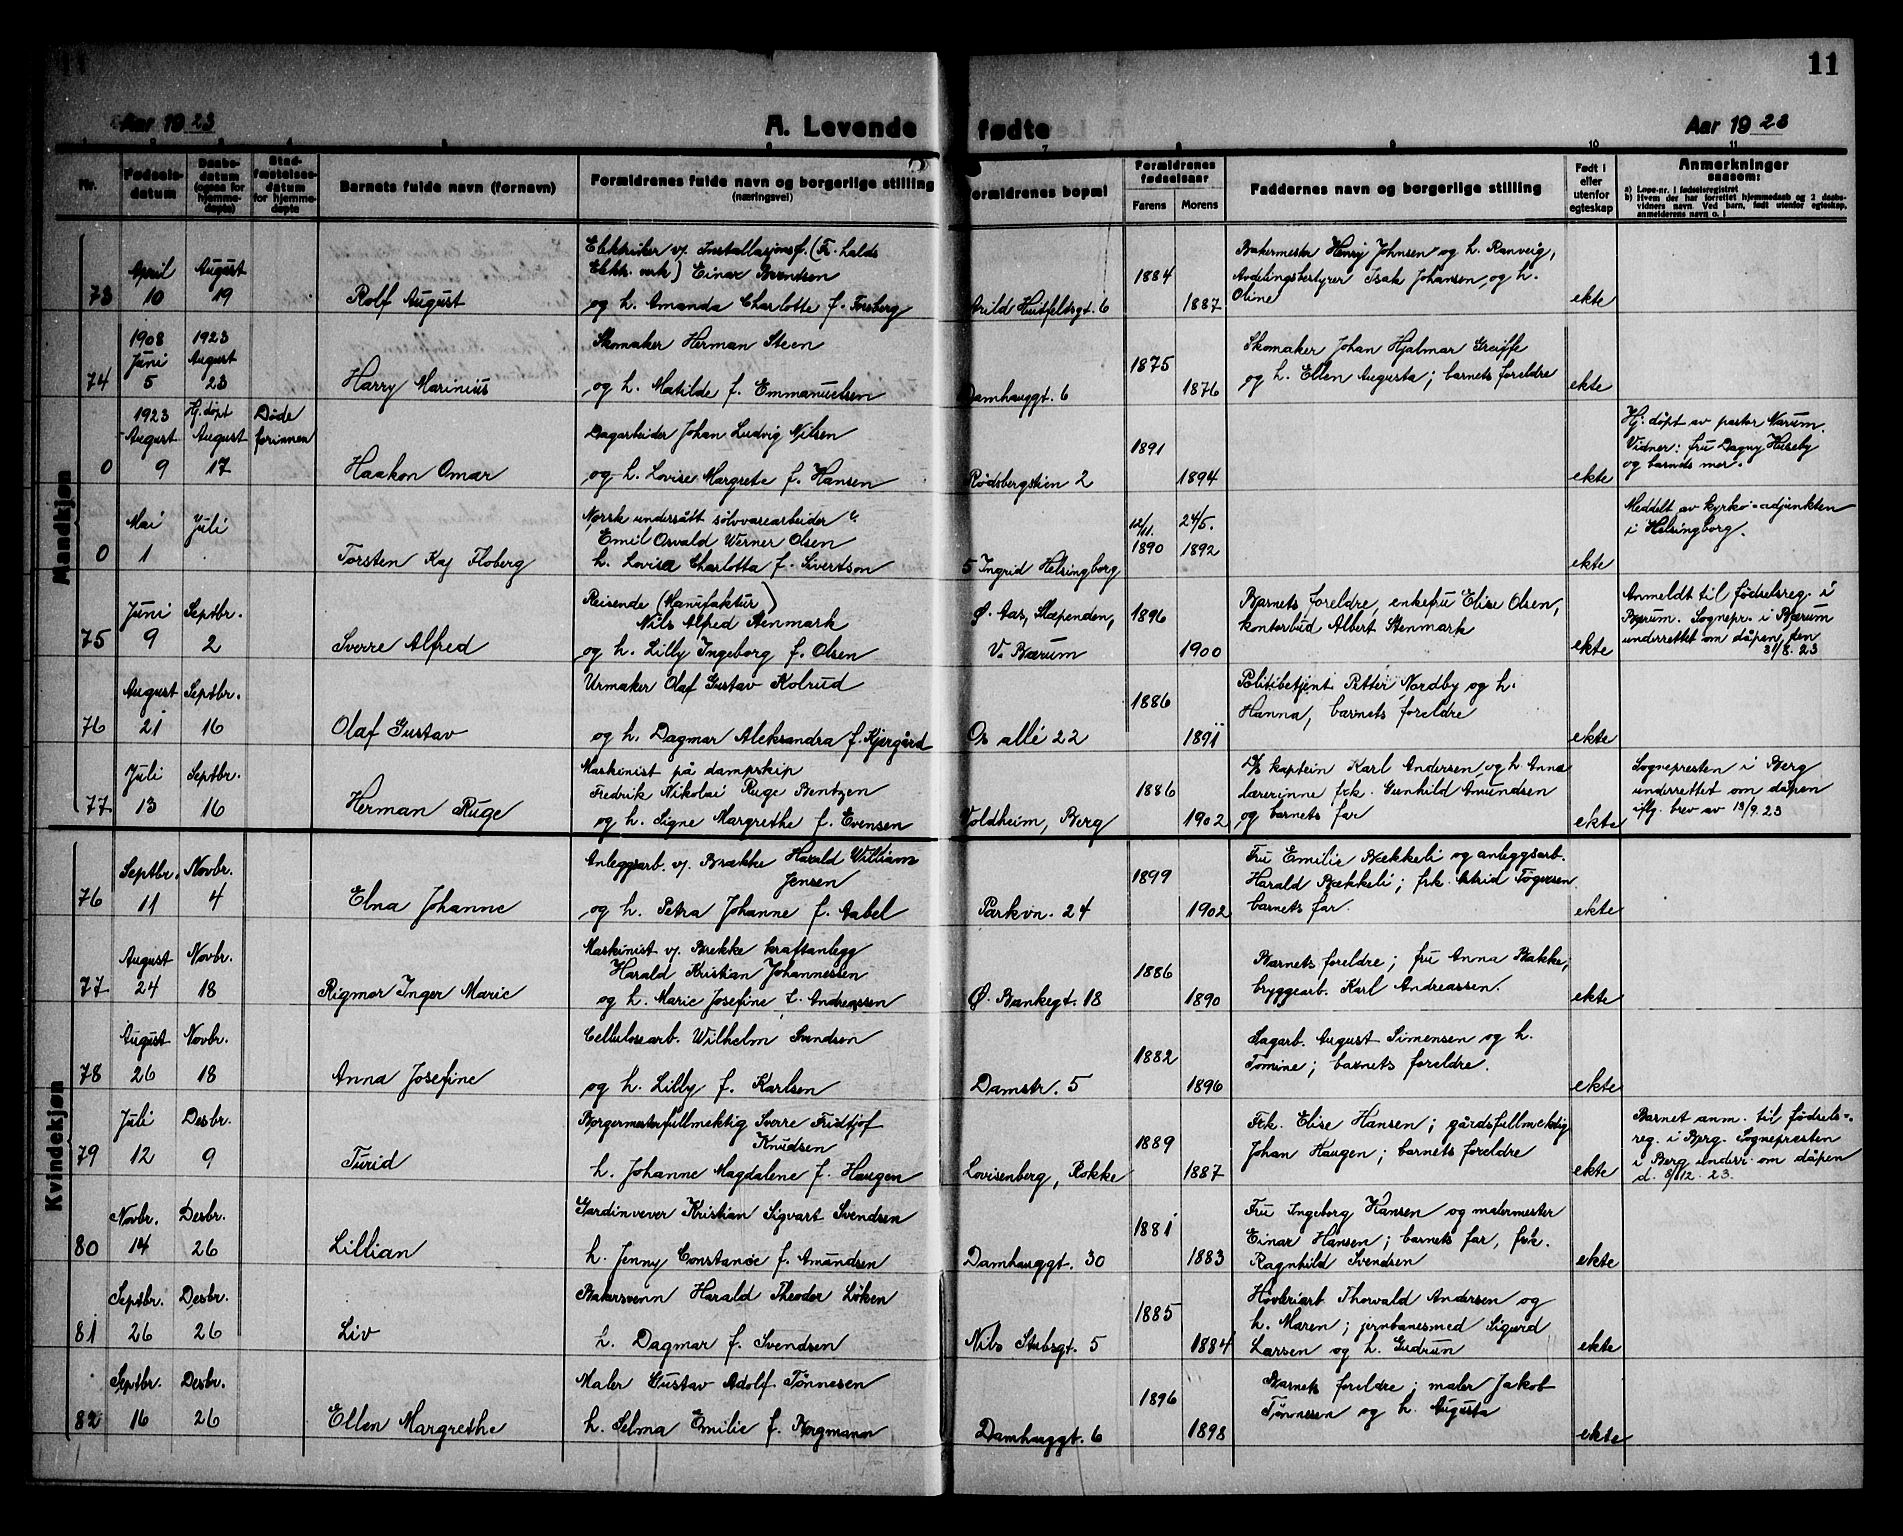 11
Aar 1923
A. Levende fødte
Aar 1923
Nr.
Fødsels-
datum
Daabs-
datum
(ogsaa for
hjemme-
døpte)
Stad-
fæstelses-
datum
for hjemme-
døpte
Barnets fulde navn (fornavn)
Forældrenes fulde navn og borgerlige stilling
(næringsvei)
Forældrenes bopæl
Forældrenes
fødselsaar
Farens
Morens
Faddernes navn og borgerlige stilling
Født i
eller
utenfor
egteskap
Anmerkninger
saasom:
a) Løpe-nr. i fødselsregistret
b) Hvem der har forrettet hjemmedaab og 2 daabs-
vidners navn. Ved barn, født utenfor egteskap,
anmelderens navn o. l
Mandkjøn
73
April
10
August
19
Rolf August
Elektriker v/ Installasjonsf. (Fr. Halds
Elktr. verk) Einar Berndsen
og h. Amanda Charlotte f. Forsberg
Arild Huitfeldtsgt. 6
1884
1887
Bakermester Henry Johnsen og h. Ranveig,
Avdelingsbestyrer Isak Johansen, og h.
Oline
ekte
74
1908
Juni
5
1923
August
23
Harry Marinius
Skomaker Herman Steen
og h. Matilde f. Emmanuelsen
Damhauggt. 6
1875
1876
Skomaker Johan Hjalmar Greiffe
og h. Ellen Augusta; barnets foreldre
ekte
0
1923
August
9
Hj. døpt
August
17
Døde
forinnen
Haakon Omar
Dagarbeider Johan Ludvig Nilsen
og h. Lovise Margrete f. Hansen
Rødsbergstien 2
1891
1894
ekte
Hj. døpt av pastor Narum.
Vidner: fru Dagny Huseby
og barnets mor.
0
Mai
1
Juli
Torsten Kaj Floberg
Norsk undersått sølvvarearbeider
Emil Osvald Werner Olsen
h. Lovisa Charlotta f. Sivertson
5 Ingrid Helsingborg
12/11.
1890
24/5.
1892
ekte
Meddelt av kyrko-adjunkten
i Helsingborg.
75
Juni
9
Septbr.
2
Sverre Alfred
Reisende (Manufaktur)
Nils Alfred Stenmark
og h. Lilly Ingeborg f. Olsen
Ø. Aas, Slæpenden,
V. Bærum
1896
1900
Barnets foreldre, enkefru Elise Olsen,
kontorbud Albert Stenmark
ekte
Anmeldt til fødselsreg. i
Bærum. Sognepr. i Bærum
underrettet om dåpen, den
31/8. 23
76
August
21
Septbr.
16
Olaf Gustav
Urmaker Olaf Gustav Kolrud
og h. Dagmar Aleksandra f. Kjergård
Os allé 22
1886
1891
Politibetjent Petter Nordby og h.
Hanna, barnets foreldre
ekte
77
Juli
13
Septbr.
16
Herman Ruge
Maskinist på dampskip
Fredrik Nikolai Ruge Bentzen
og h. Signe Margrethe f. Evensen
Voldheim, Berg
1886
1902
D/S kaptein Karl Andersen, og h. Anna
lærerinne frk. Gunhild Amundsen
og barnets far
ekte
Sognepresten i Berg
underrettet om dåpen
iflg. brev av 13/9. 23
Kvindekjøn
76
Septbr.
11
Novbr.
4
Elna Johanne
Anleggsarb. v/. Brække Harald William
Jensen
og h. Petra Johanne f. Aabel
Parkvn. 24
1899
1902
Fru Emilie Bækkeli og anleggsarb.
Harald Bækkeli; frk. Astrid Tøgersen
barnets far.
ekte
77
August
24
Novbr.
18
Rigmor Inger Marie
Maskinist v/. Brekke kraftanlegg
Harald Kristian Johannessen
og h. Marie Josefine f. Andreassen
Ø. Bankegt. 18
1886
1890
Barnets foreldre; fru Anna Bakke;
bryggearb. Karl Andreassen.
ekte
78
August
26
Novbr.
18
Anna Josefine
Cellulosearb. Wilhelm Svendsen
og h. Lilly f. Karlsen
Damstr. 5
1882
1896
Sagarb. August Simensen og h.
Tomine; barnets foreldre.
ekte
79
Juli
12
Desbr.
9
Turid
Borgermesterfullmektig Sverre Fridtjof
Knudsen
h. Johanne Magdalene f. Haugen
Lovisenberg, Rokke
1889
1887
Frk. Elise Hansen; gårdsfullmektig
Johan Haugen; barnets foreldre
ekte
Barnet anm. til fødsels-
reg. i Berg. Sognepresten
i Berg underr. om dåpen
d. 8/12. 23.
80
Novbr.
14
Desbr.
26
Lillian
Gardinvever Kristian Sigvart Svendsen
h. Jenny Constance f. Amundsen
Damhauggt. 30
1881
1883
Fru Ingeborg Hansen og malermester
Einar Hansen; barnets far, frk.
Ragnhild Svendsen
ekte
81
Septbr.
26
Desbr.
26
Liv
Bakersvenn Harald Theodor Løken
h. Dagmar f. Svendsen
Nils Stubsgt. 5
1885
1884
Høvleriarb. Thorvald Andersen og
h. Maren; jernbanesmed Sigurd
Larsen og h. Gudrun
ekte
82
Septbr.
16
Desbr.
26
Ellen Margrethe
Maler Gustav Adolf Tønnesen
h. Selma Emilie f. Borgmann
Damhauggt. 6
1896
1898
Barnets foreldre; maler Jakob
Tønnesen og h. Augusta
ekte